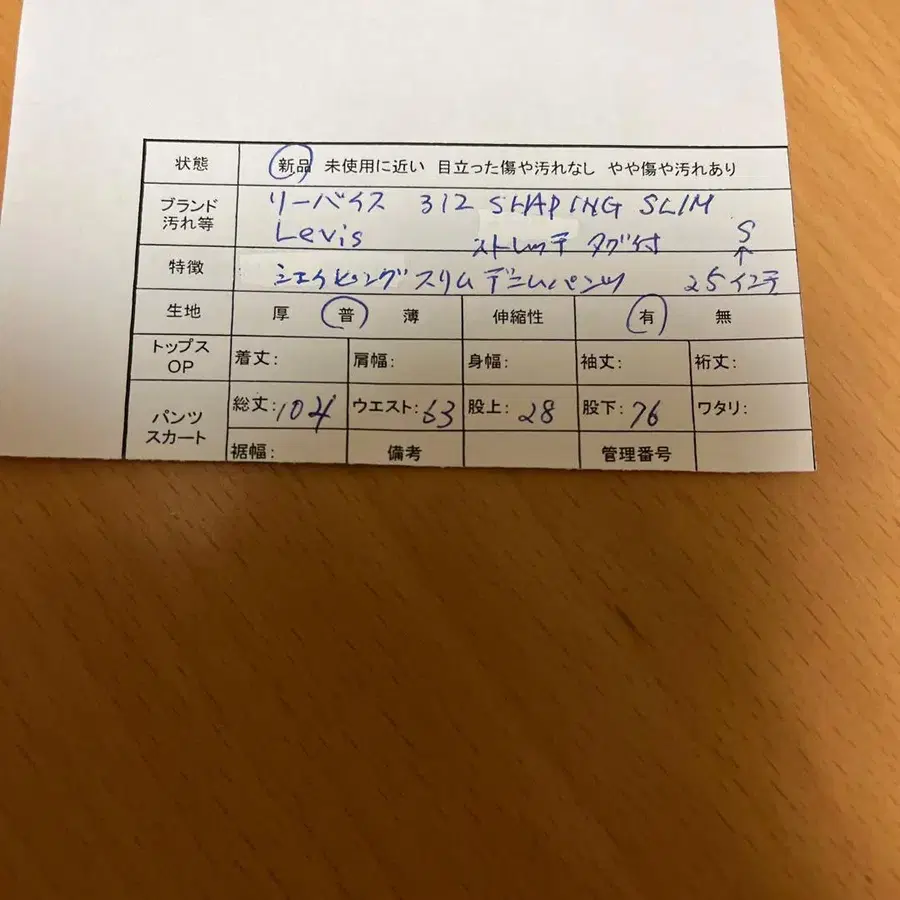 状態 新品 未使用に近い 目立った傷や汚れなし やや傷や汚れあり
ブランド リーバイス 312 SHAPING SLIM
汚れ等 Levis ストレッチ タグ付 S
↑
特徴 シェイピングスリムデニムパンツ 25インチ
生地 厚 普 薄 伸縮性 有 無
トップス
OP 着丈: 肩幅: 身幅: 袖丈: 裄丈:
パンツ
スカート 総丈:104 ウエスト:63 股上:28 股下:76 ワタリ:
裾幅: 備考 管理番号